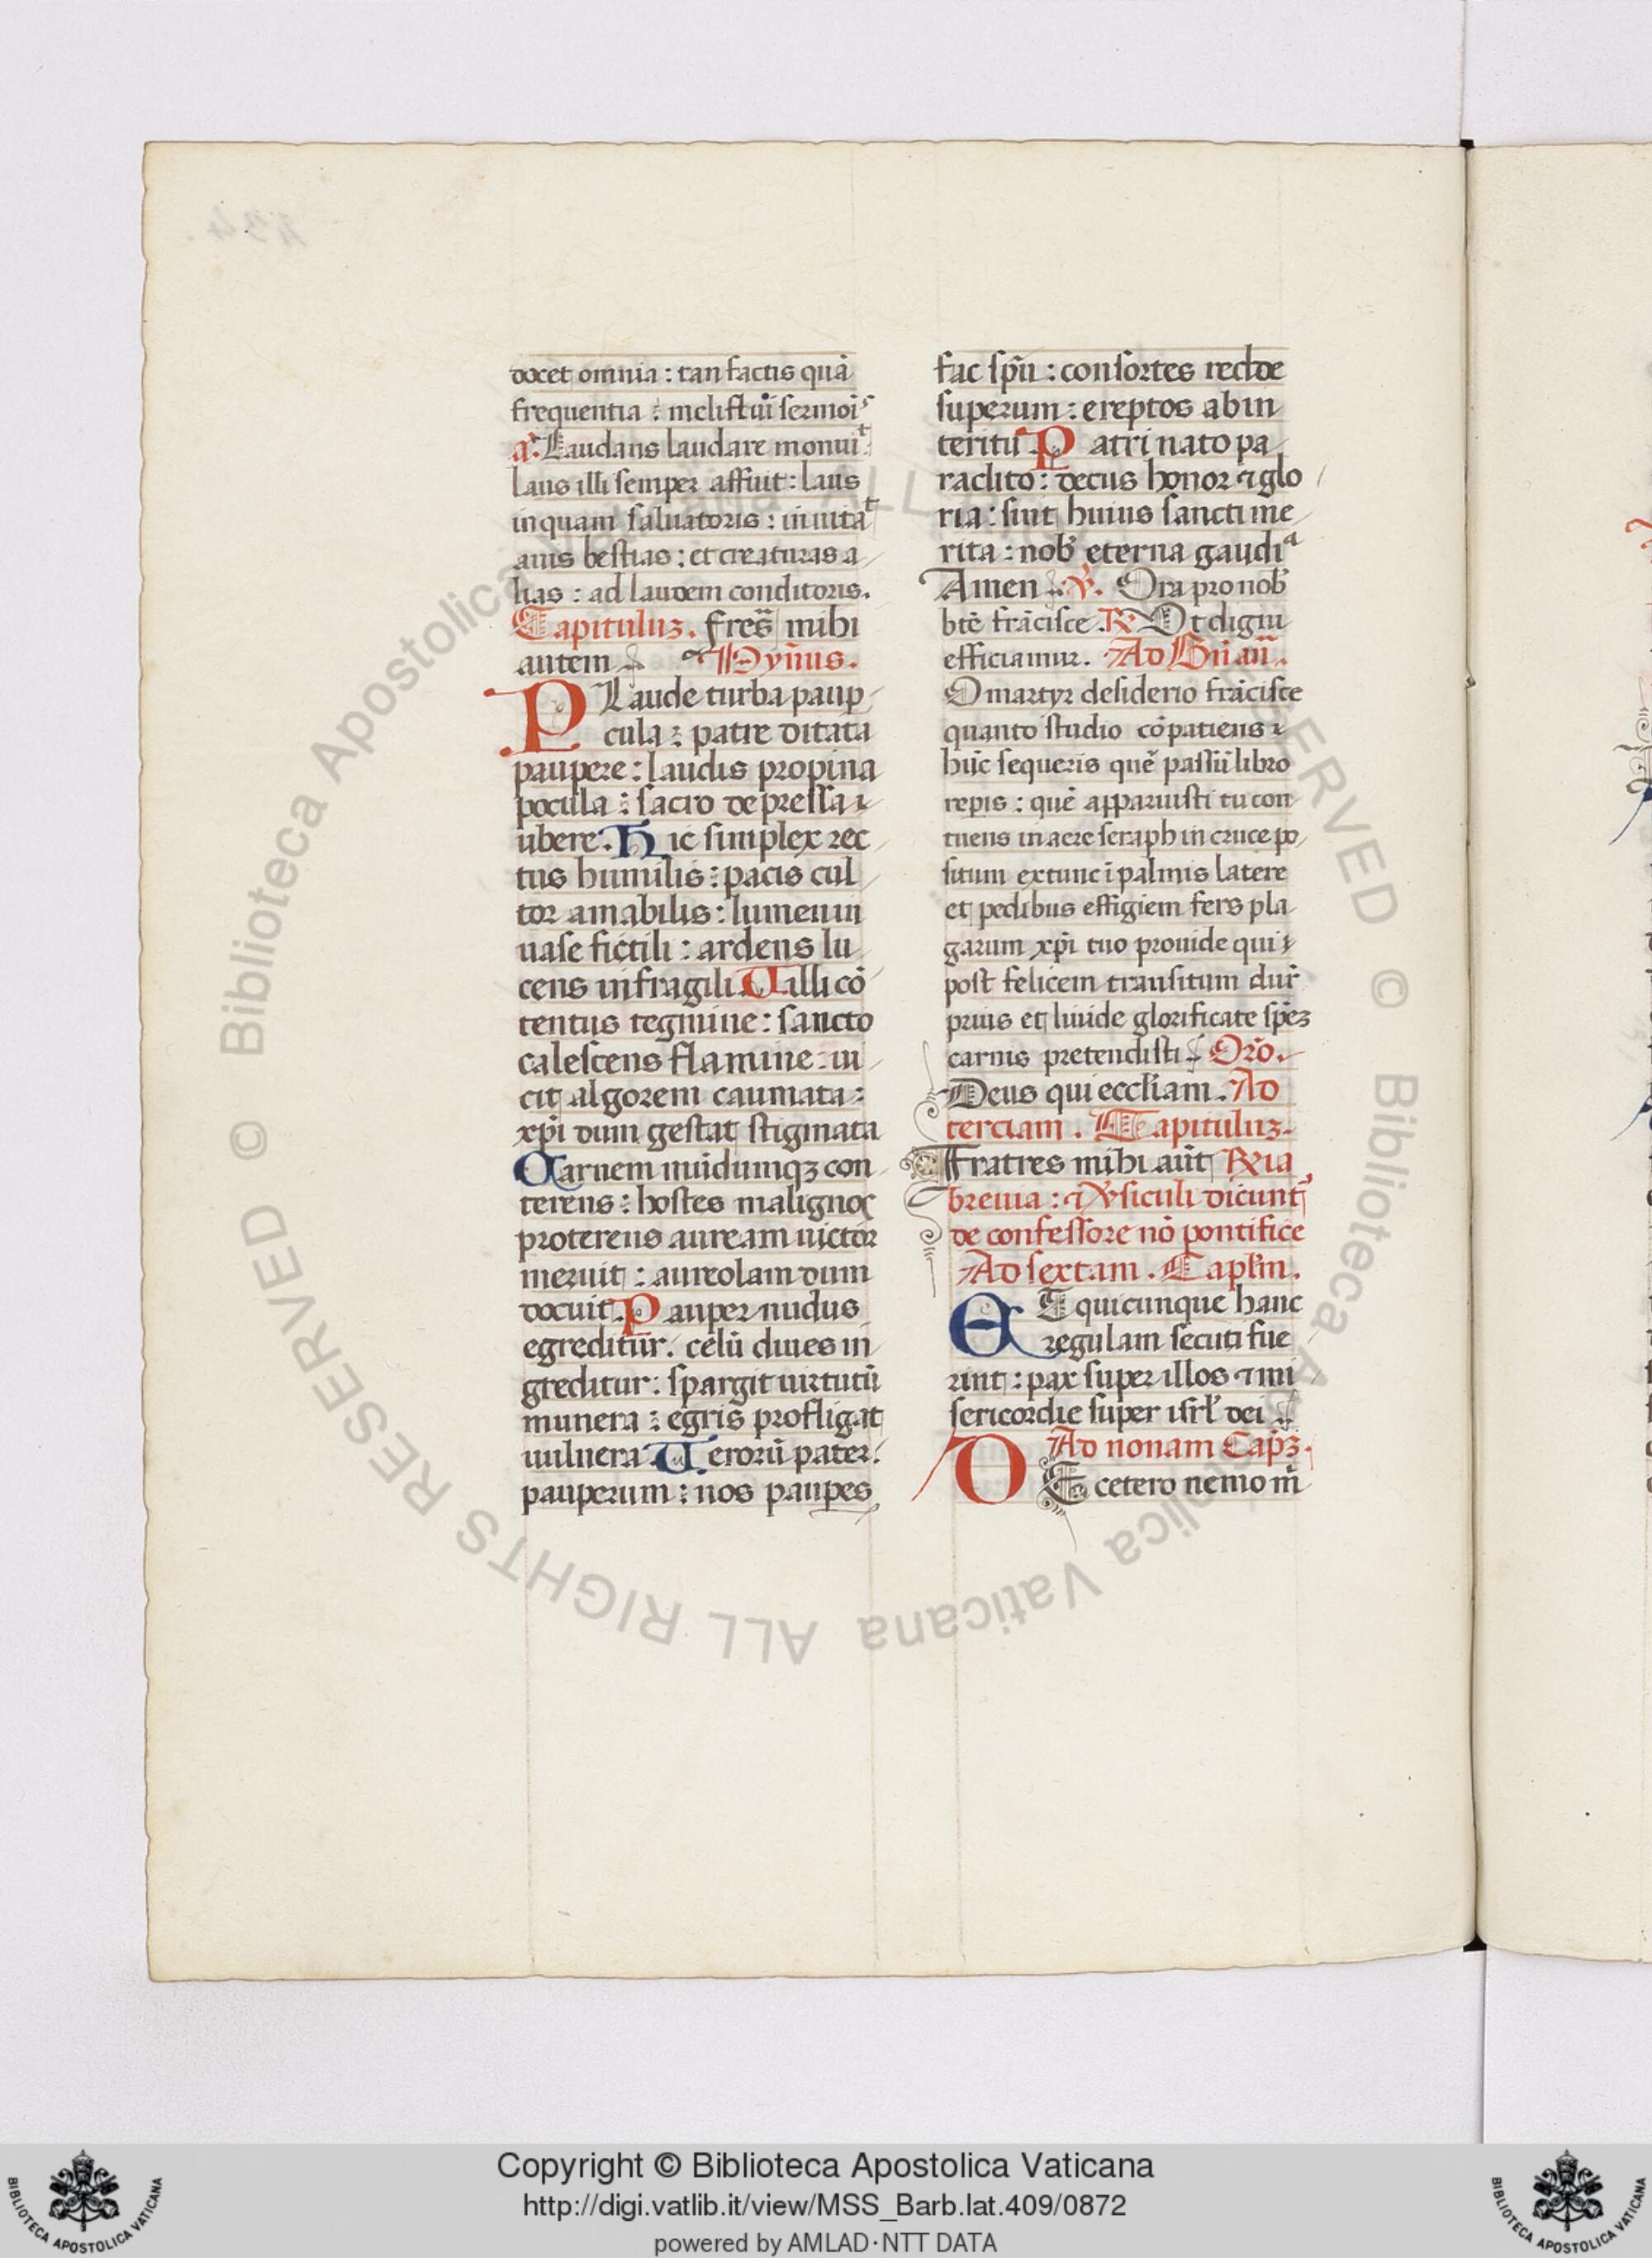 docet omnia : tan factis quā
frequentia : meliflui sermoīs
a. Laudans laudare monuit.
laus illi semper affuit : laus
inquam saluatoris : inuitat
auis bestias : et creaturas a
lias : ad laudem conditoris.
Capituluz. fres̄ mihi
autem Hyn̄us.
PLaude turba paup
cula : patre ditata
paupere : laudis propina
pocula : sacro depressa
ubere. Hic simplex rec
tus humilis : pacis cul
tor amabilis : lumen in
uase fictili : ardens lu
cens in fragili Uilli cō
tentus tegmine : sancto
calescens flamine : ui
cit algorem caumata :
xp̄i dum gestat stigmata
Carnem mūdumqz con
terens : hostes malignos
proterens auream uictor
meruit : aureolam dum
docuit. Pauper nudus
egreditur. celū diues in
greditur : spargit uirtutū
munera : egris profligat
uulnera. Uerorū pater.
pauperum : nos paupes
fac sp̄u : consortes redde
superum : ereptos ab in
teritu Patri nato pa
raclito : decus honor ⁊ glo
ria : sint huius sancti me
rita : nob' eterna gaudia
Amen V. Ora pro nob'
btē frācisce. R Ut digni
efficiamur. Ad Bn̄ an̄.
O martyr desiderio frācisce
quanto studio cōpatiens
hūc sequeris quē passū libro
repis : quē apparuisti tu con
tuens in aere seraph in cruce po
situm ex tunc ī palmis latere
et pedibus effigiem fers pla
garum xp̄i tuo prouide qui
post felicem transitum dur̄
prius et liuide glorificate sp̄ez
carnis pretendisti Orō.
Deus qui eccliam. Ad
terciam. Capituluz.
Fratres mihi aūt Rxia
breuia : ⁊ Vsiculi dicunt'
de confessore nō pontifice
Ad sextam. Caplm.
ET quicunque hanc
regulam secuti fue
rint : pax super illos ⁊ mi
sericordie super isrl' dei
Ad nonam Cap̄z.
DE cetero nemo m̄
Copyright © Biblioteca Apostolica Vaticana
http://digi.vatlib.it/view/MSS_Barb.lat.409/0872
powered by AMLAD·NTT DATA
BIBLIOTECA APOSTOLICA VATICANA
BIBLIOTECA APOSTOLICA VATICANA
© Biblioteca Apostolica Vaticana ALL RIGHTS RESERVED © Biblioteca Apostolica Vaticana ALL RIGHTS RESERVED